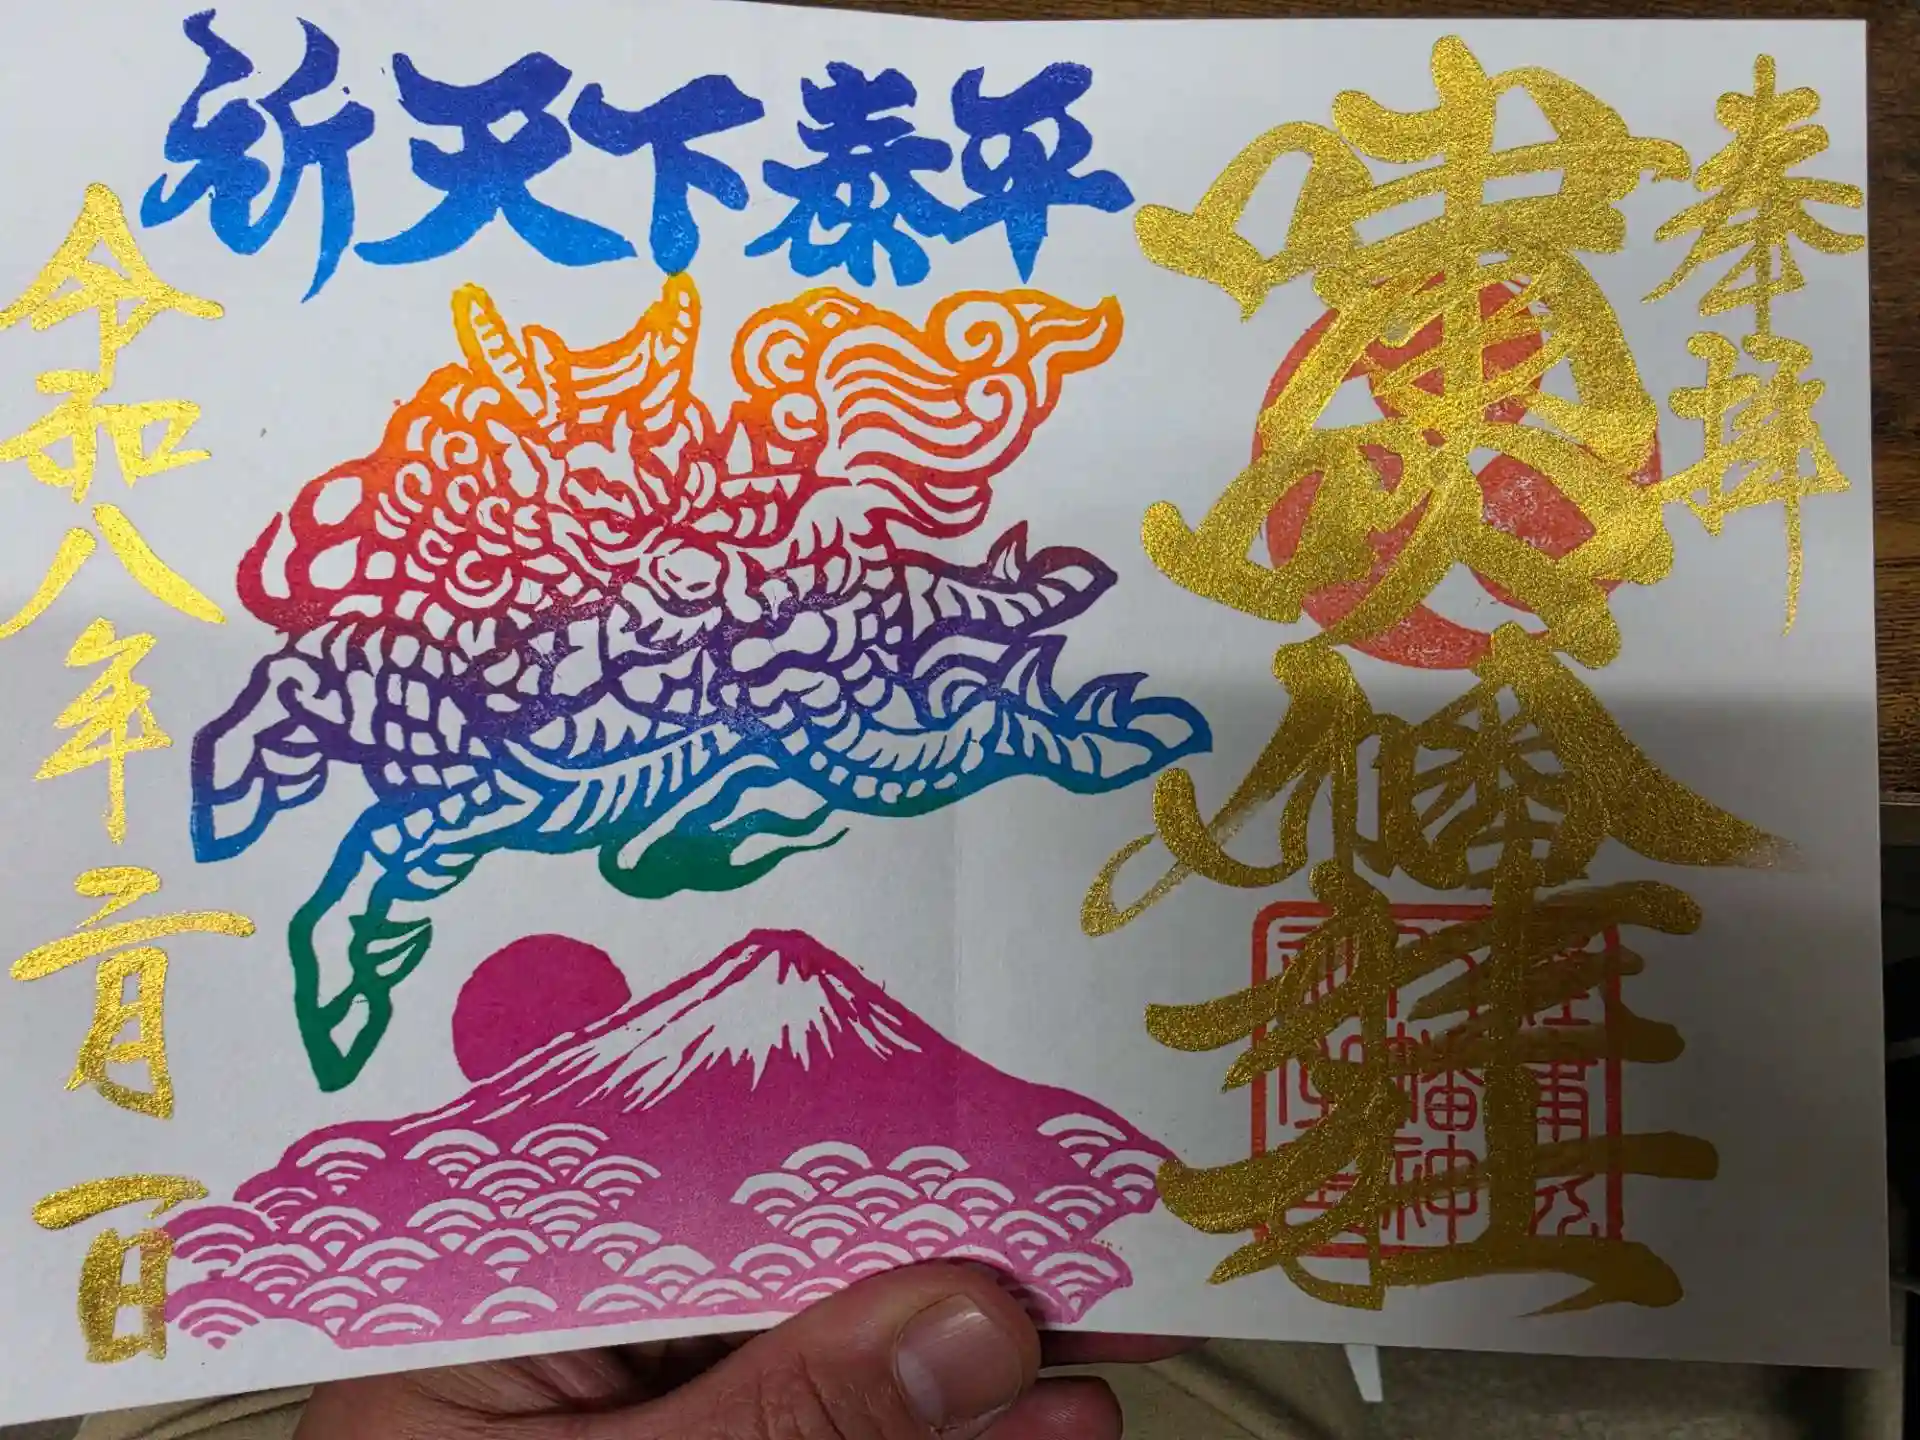 奉拝
嘯吹八幡神社
祈天下泰平
令和八年二月一日